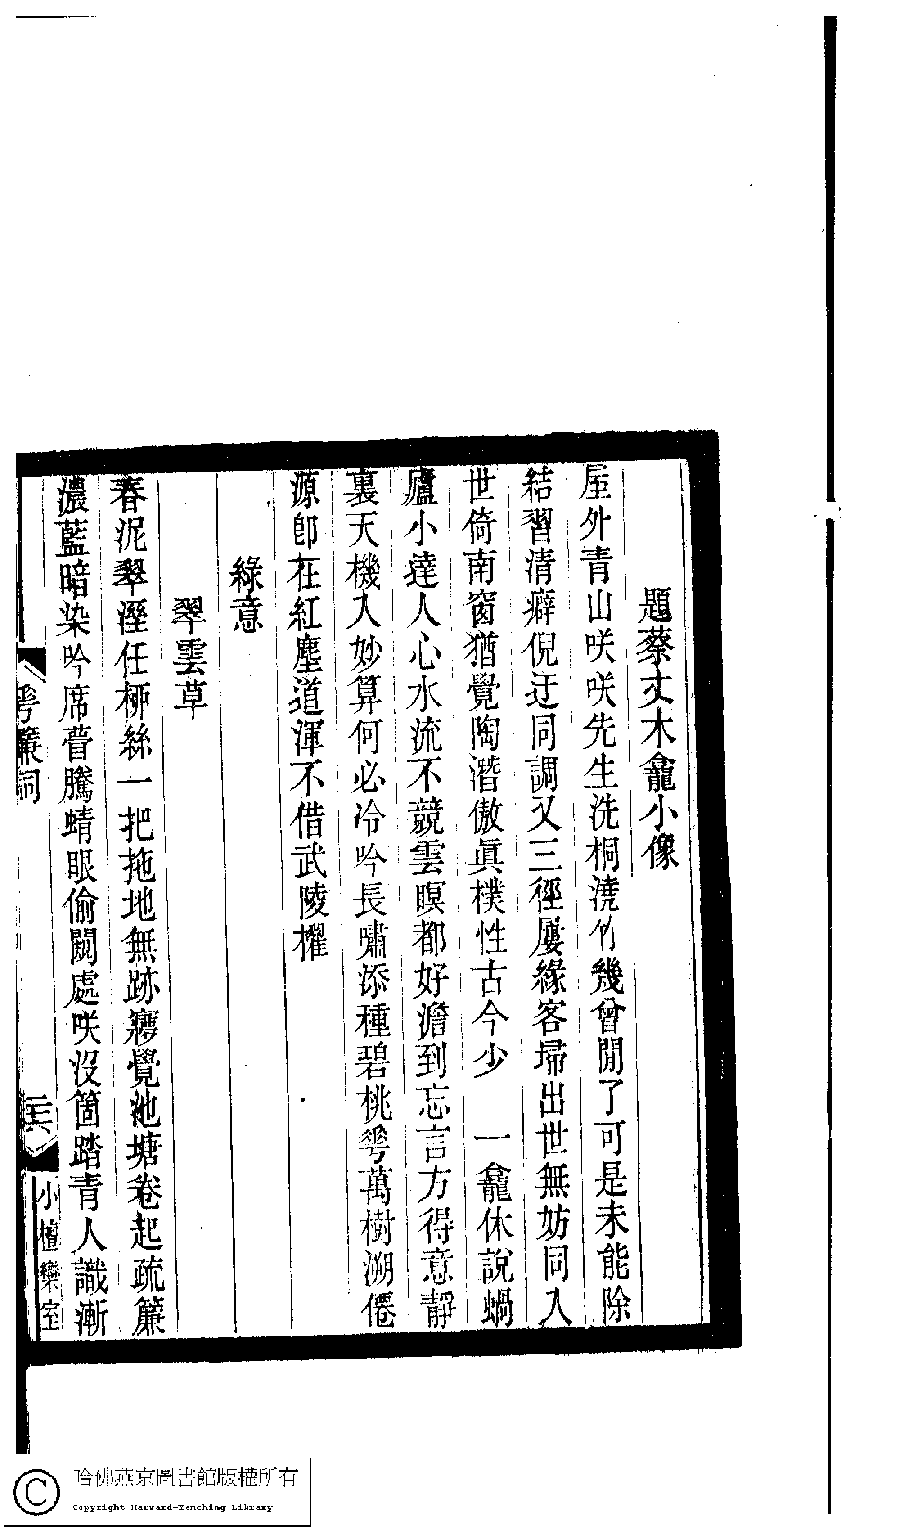 題蔡丈木龕小像
屋外青山咲咲先生洗桐澆竹幾曾閒了可是未能除
結習清癖倪迂同調又三徑屢緣客埽出世無妨同入
世倚南窗猶覺陶潛傲眞樸性古今少　一龕休說蝸
廬小達人心水流不競雲瞑都好澹到忘言方得意靜
裏天機入妙算何必冷吟長嘯添種碧桃蕚萬樹溯僊
源卽在紅塵道渾不借武陵櫂
綠意
翠雲草
春泥翠溼任桺絲一把拖地無跡寢覺池塘卷起疏簾
濃藍暗染吟席瞢騰蜻眼偷闚處咲沒箇踏青人識漸
簾詞
小檀欒室
哈佛燕京圖書館版權所有
Copyright Harvard-Yenching Library